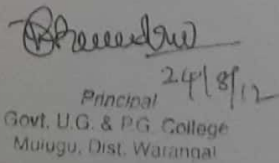 24/8/12
Principal
Govt. U.G. & P.G. College
Mulugu, Dist. Warangal